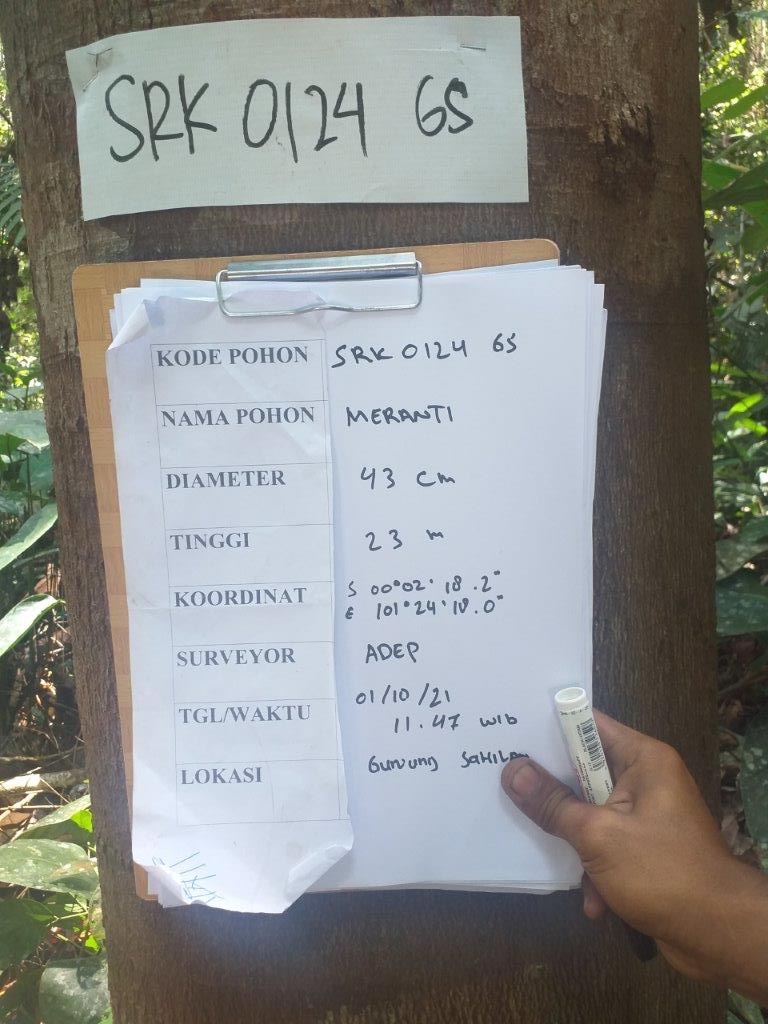 SRK 0124 GS
KODE POHON SRK 0124 GS
NAMA POHON MERANTI
DIAMETER 43 cm
TINGGI 23 m
KOORDINAT S 00°02'18.2"
E 101°24'18.0"
SURVEYOR ADEP
TGL/WAKTU 01/10/21
11.47 WIB
LOKASI Gunung Sahilan